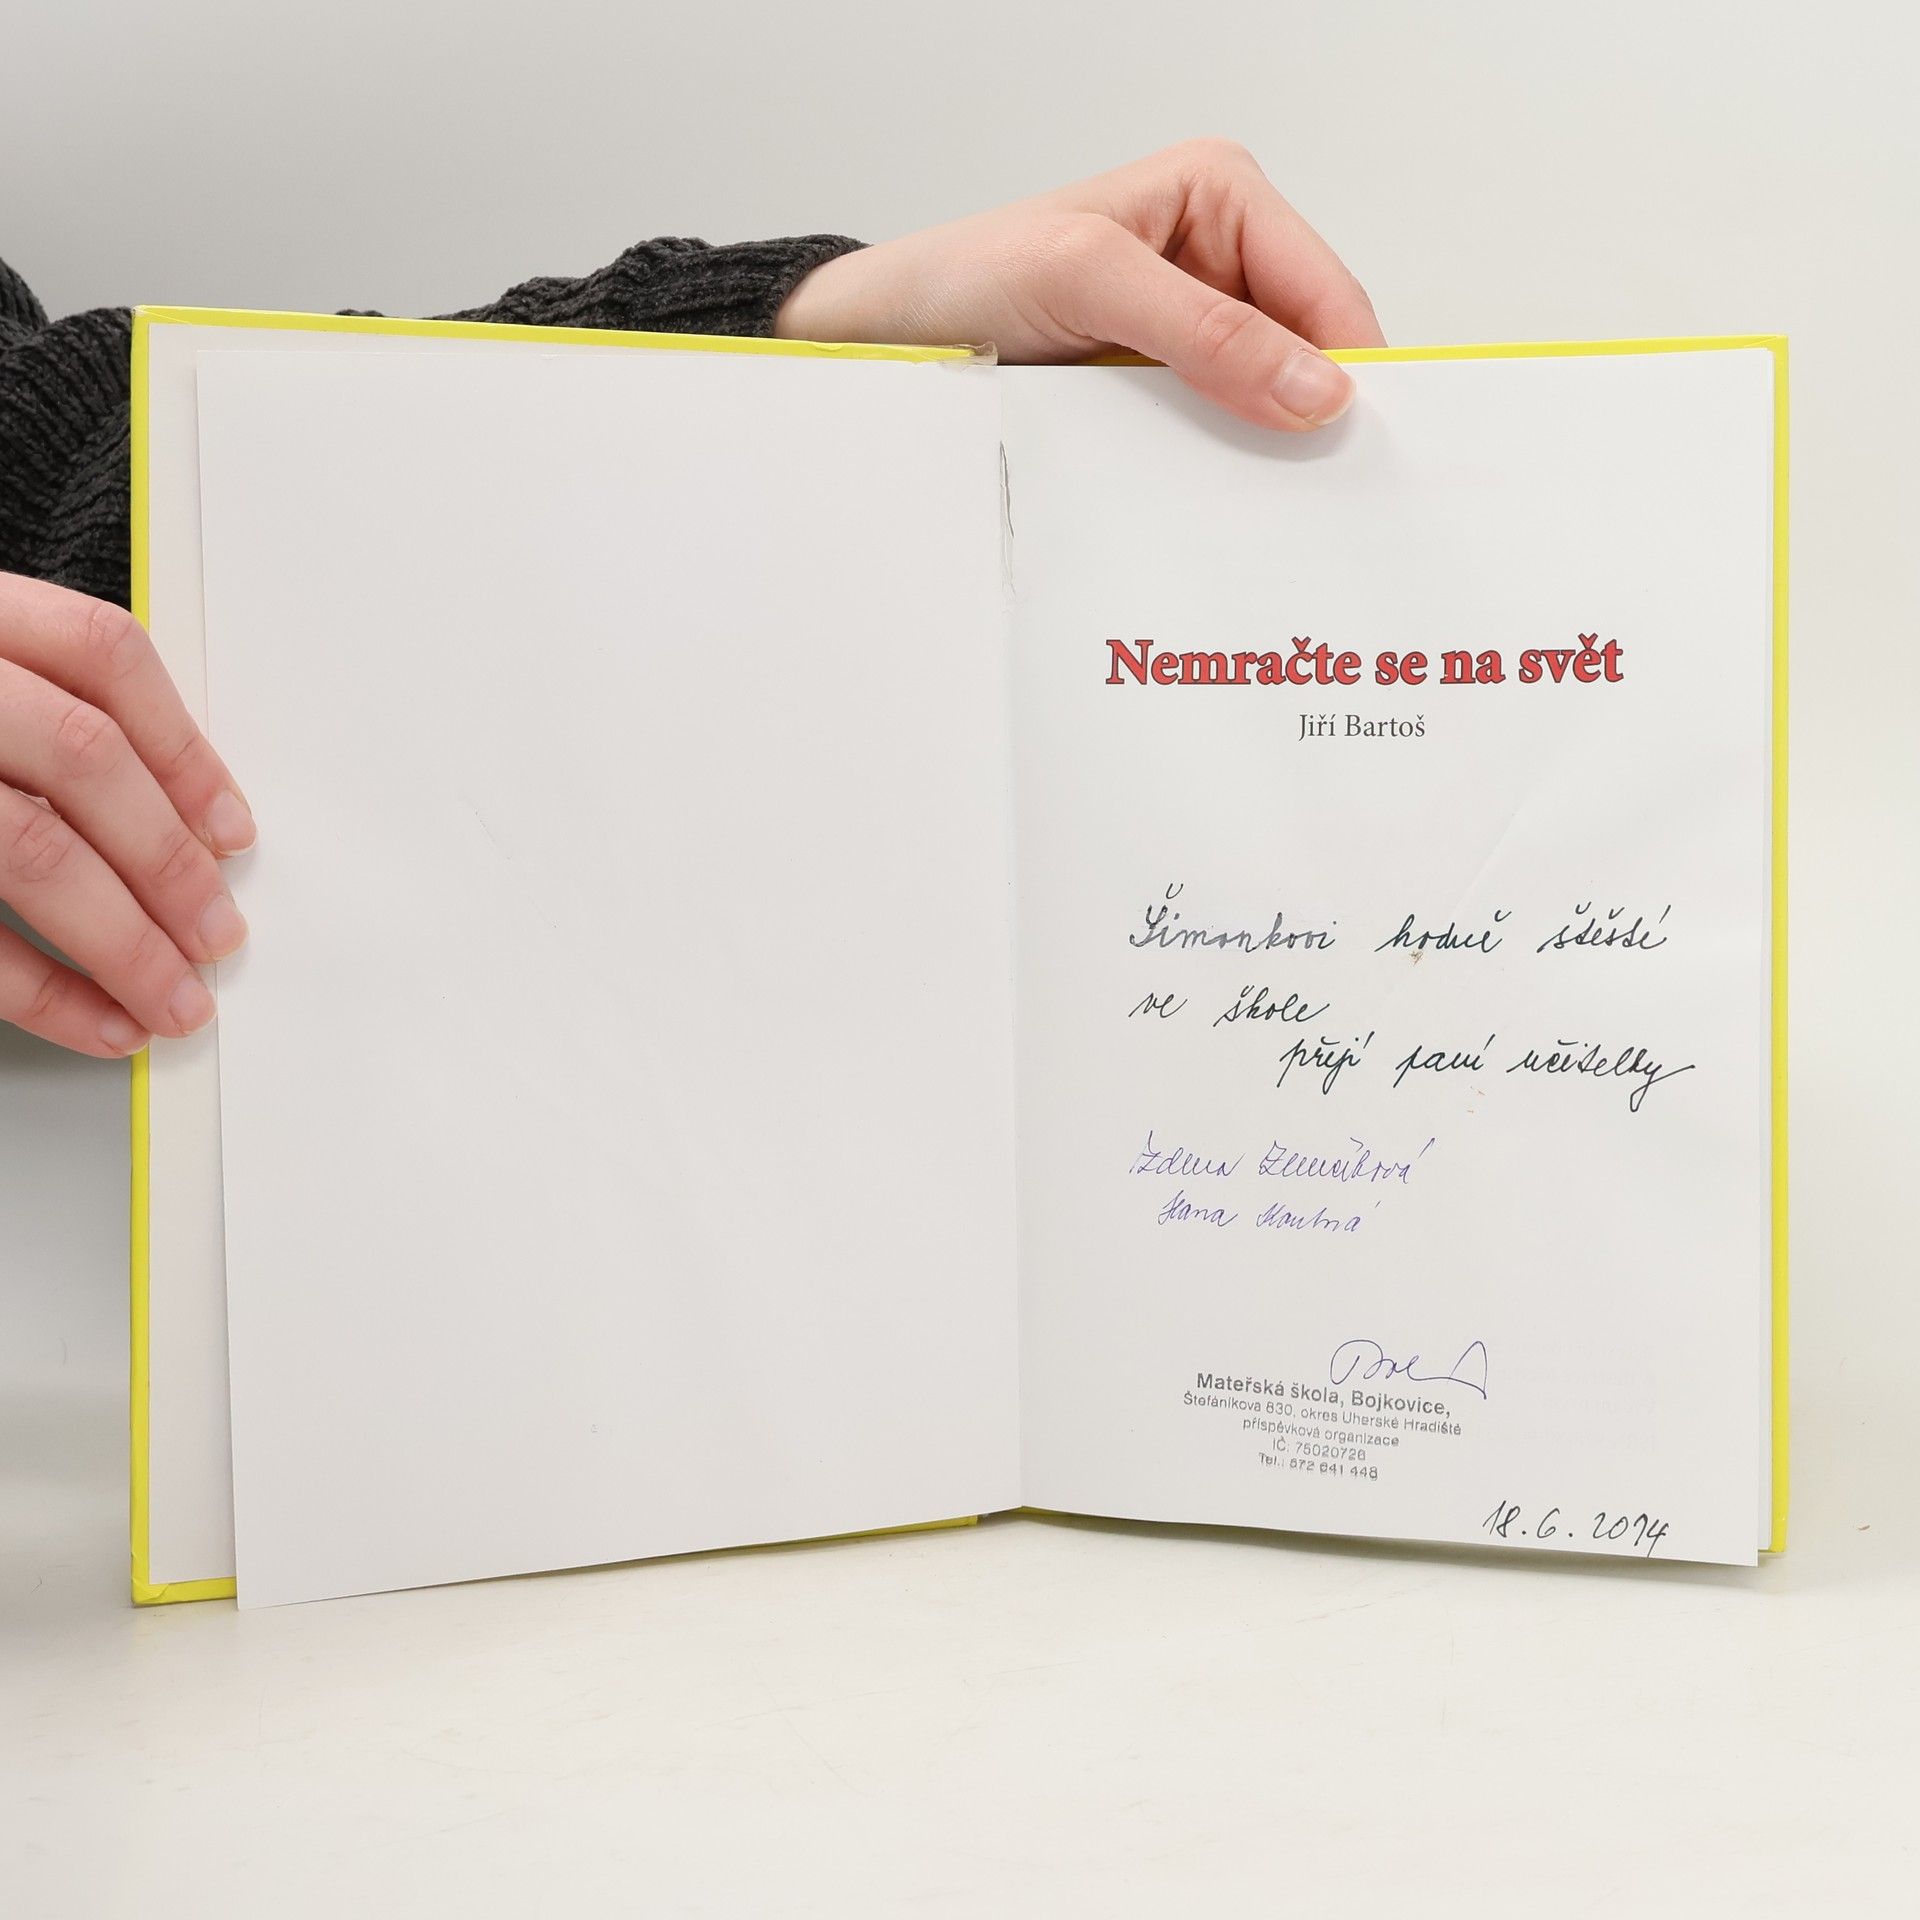 Nemračte se na svět
Jiří Bartoš
Šimonkovi hodně štěstí
ve škole
přejí paní učitelky
Zdena Zemčíková
Hana Koutná
Mateřská škola, Bojkovice,
Štefánikova 830, okres Uherské Hradiště
příspěvková organizace
IČ: 75020726
Tel.: 572 641 448
18. 6. 2014